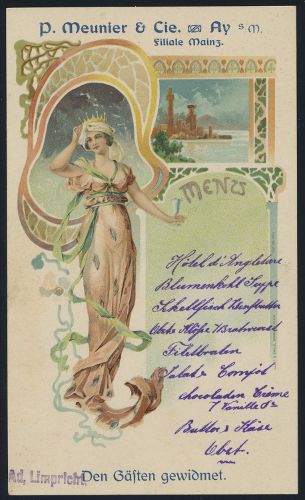 P. Meunier & Cie. Ay s M.
Filiale Mainz.
MENU
Hôtel d'Angleterre
Blumenkohl Suppe
Schellfisch
Filetbraten
Salat & Compot
chocoladen Crème
/ Vanille
Butter & Käse
Obst.
Ad. Limpricht,
Den Gästen gewidmet.